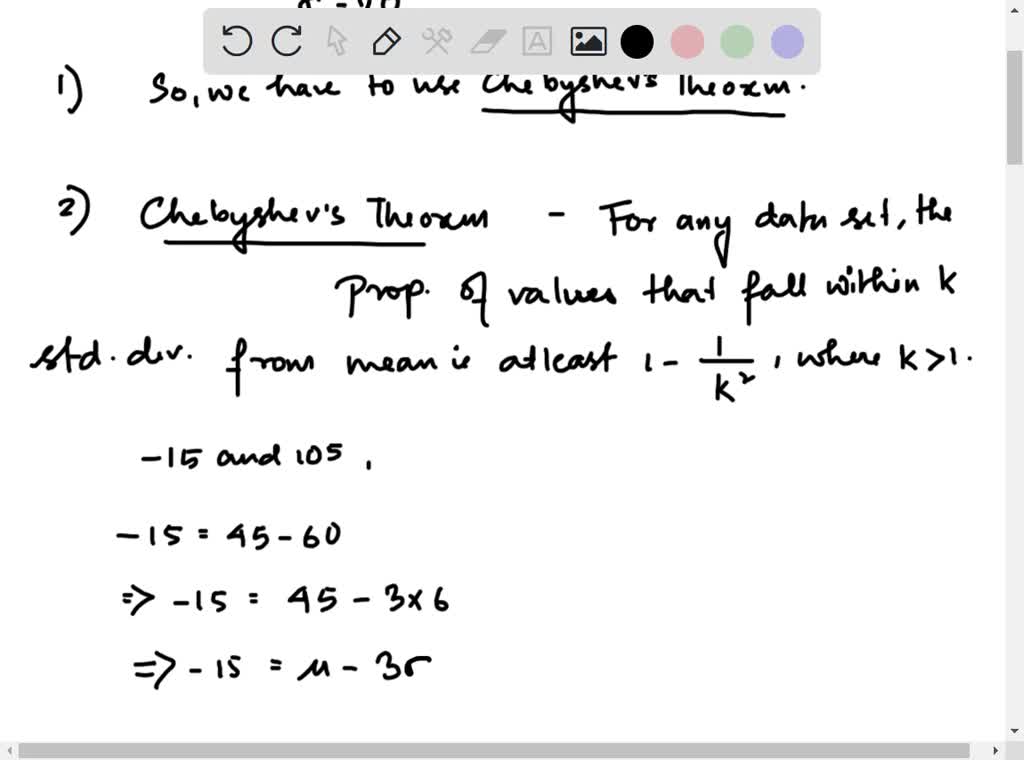 1) So, we have to use Chebyshev's Theorem.
2) Chebyshev's Theorem - For any data set, the
Prop. of values that fall within k
std. div. from mean is atleast 1 - 1/k², where k>1.
-15 and 105,
-15 = 45 - 60
=> -15 = 45 - 3×6
=> -15 = μ - 3σ